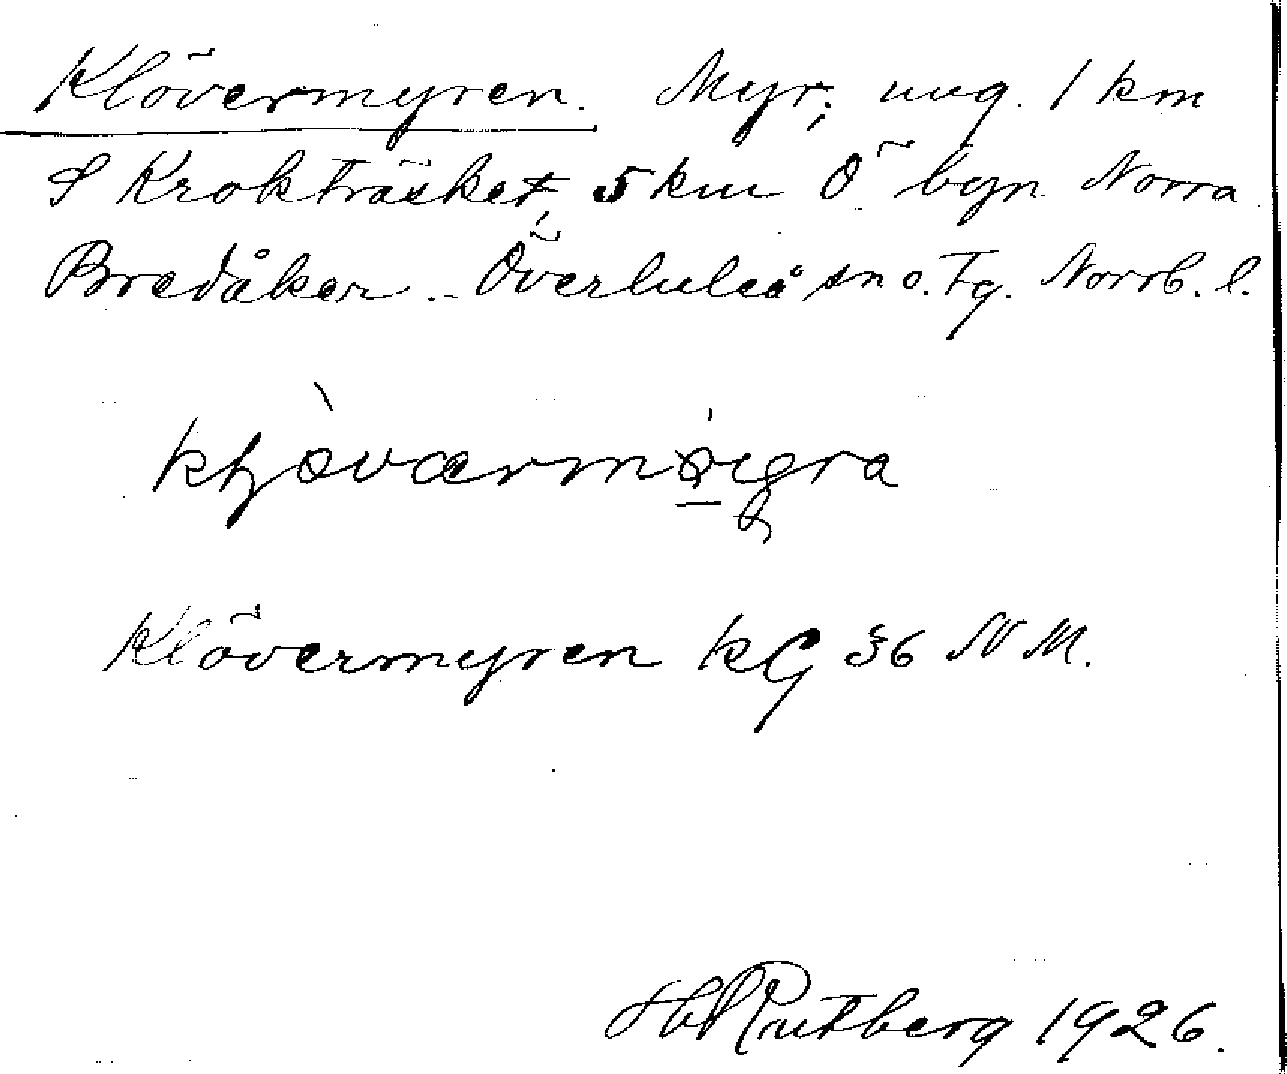 Klövermyren. Myr, ung. 1 km
S Kroktråsket, 5 km Ö byn Norra
Bredåker. Överluleå sn o. tg. Norrb. l.
Klövermyren KG §6 NM.
Rutberg 1926.